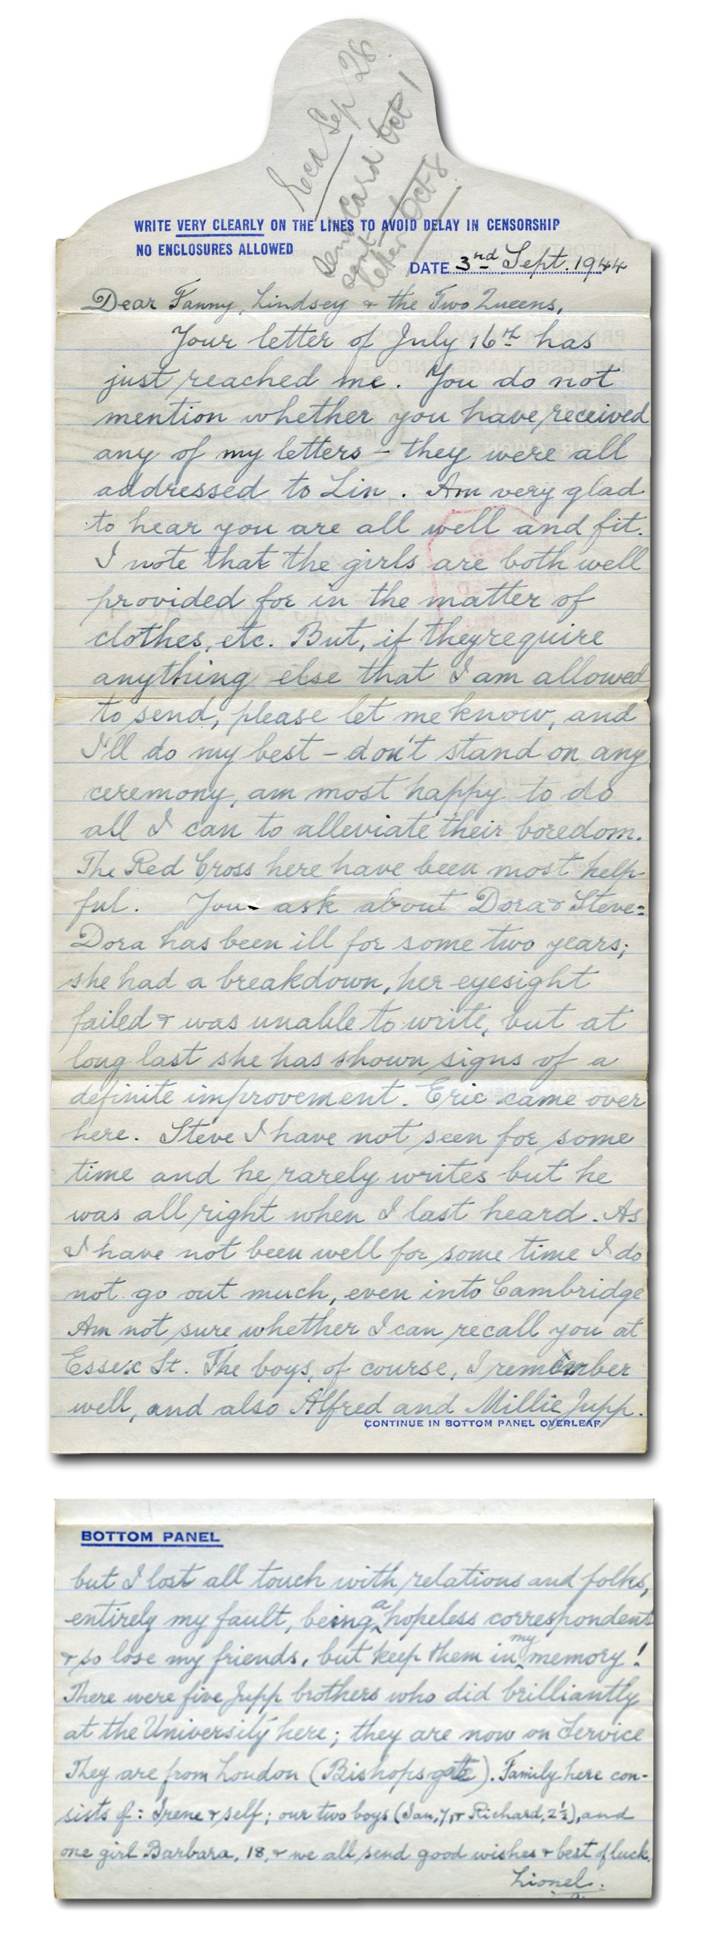 Recd Sep 28
Send Card Oct 1
letter Oct 8
WRITE VERY CLEARLY ON THE LINES TO AVOID DELAY IN CENSORSHIP
NO ENCLOSURES ALLOWED
DATE 3rd Sept. 1944
Dear Fanny, Lindsey & the Two Queens,
Your letter of July 16th has
just reached me. You do not
mention whether you have received
any of my letters – they were all
addressed to Lin. Am very glad
to hear you are all well and fit.
I note that the girls are both well
provided for in the matter of
clothes, etc. But, if they require
anything else that I am allowed
to send, please let me know, and
I'll do my best – don't stand on any
ceremony, am most happy to do
all I can to alleviate their boredom.
The Red Cross here have been most help-
ful. You ask about Dora & Steve:
Dora has been ill for some two years;
she had a breakdown, her eyesight
failed & was unable to write, but at
long last she has shown signs of a
definite improvement. Eric came over
here. Steve I have not seen for some
time and he rarely writes but he
was all right when I last heard. As
I have not been well for some time I do
not go out much, even into Cambridge
Am not sure whether I can recall you at
Essex St. The boys, of course, I remember
well, and also Alfred and Millie Jupp.
CONTINUE IN BOTTOM PANEL OVERLEAF
BOTTOM PANEL
but I lost all touch with relations and folks,
entirely my fault, being a hopeless correspondent
& so lose my friends, but keep them in my memory!
There were five Jupp brothers who did brilliantly
at the University here; they are now on Service
They are from London (Bishopsgate). Family here con-
sists of: Irene & self; our two boys (Ian, 7, & Richard, 2½), and
one girl Barbara, 18, & we all send good wishes & best of luck.
Lionel.